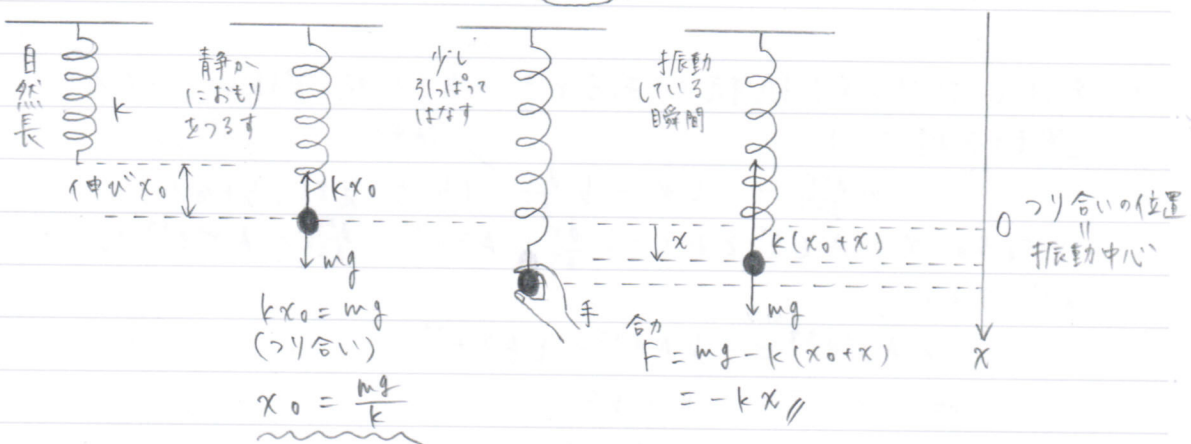 自然長
k
伸びx₀
静か
におもり
をつるす
kx₀
mg
kx₀ = mg
(つり合い)
x₀ = mg/k
少し
引っぱって
はなす
手
振動
している
瞬間
x
k(x₀+x)
mg
合力
F = mg - k(x₀+x)
= -kx
0
つり合いの位置
||
振動中心
x